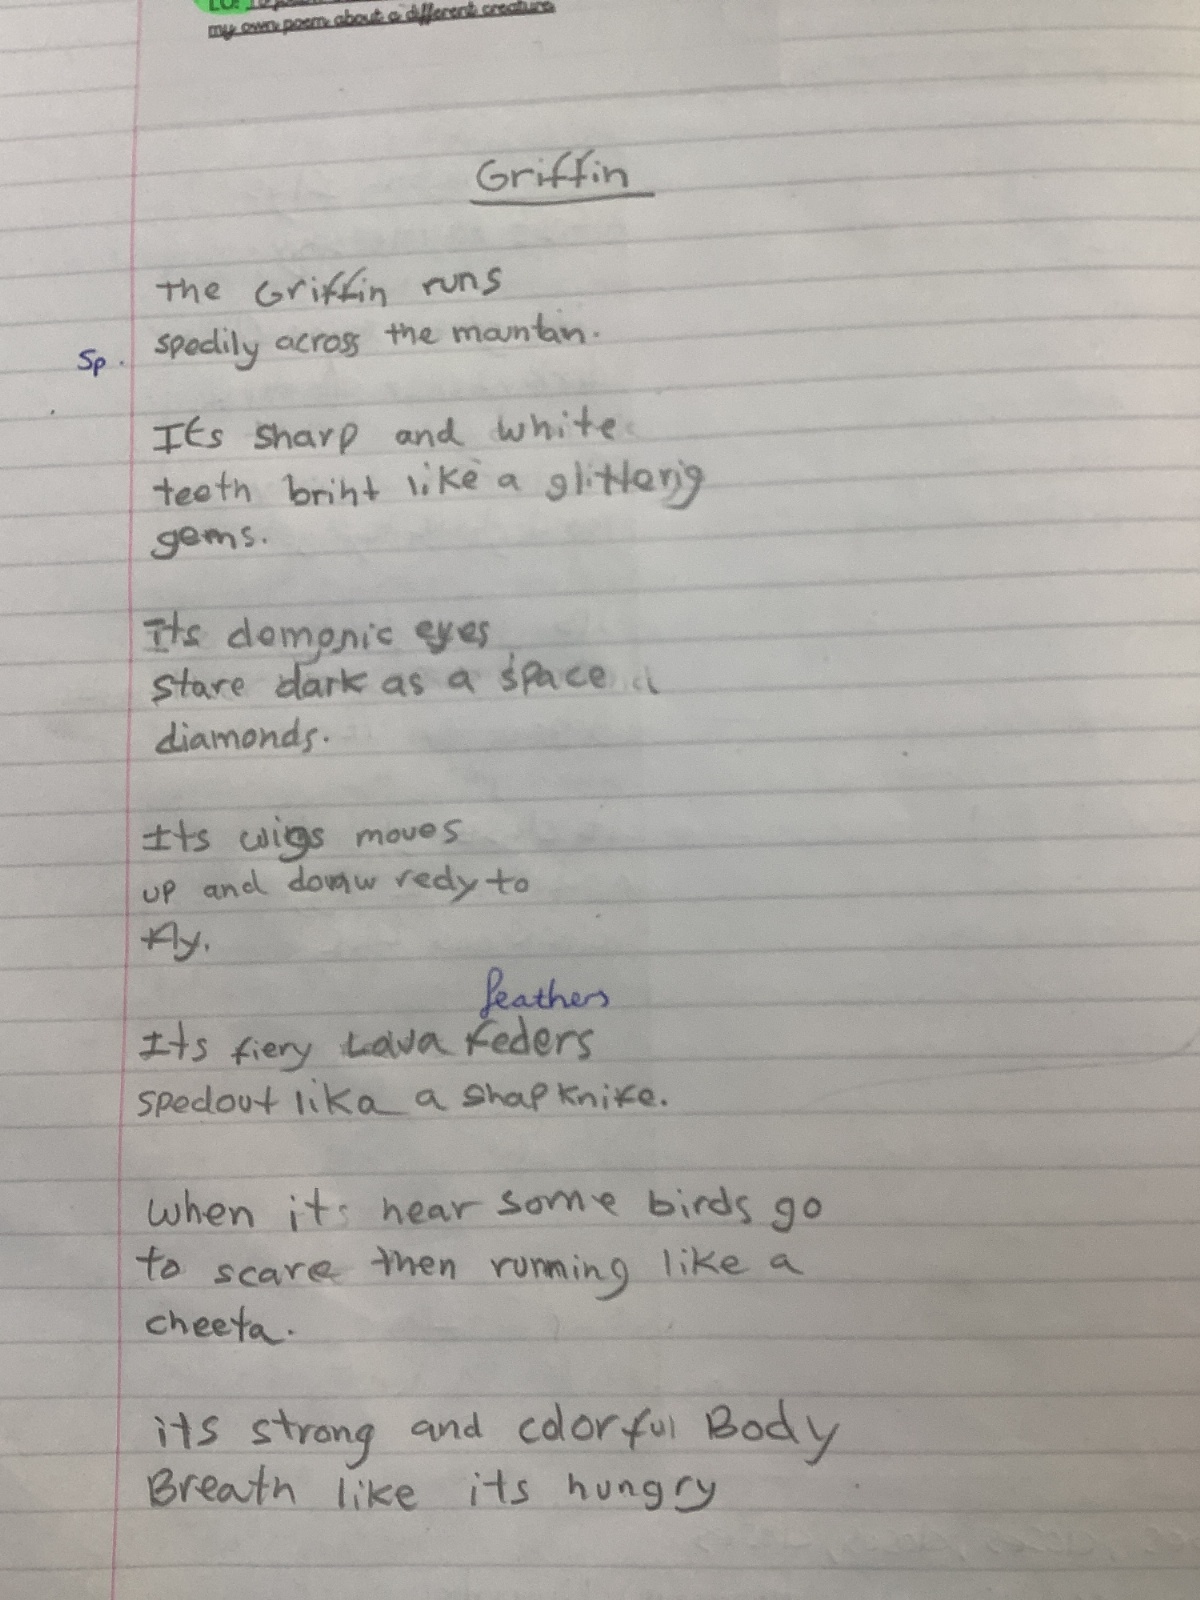 my own poem about a different creature
Griffin
The Griffin runs
Sp. spedily across the mountan.
Its sharp and white
teeth briht like a glitterig
gems.
Its demonic eyes
stare dark as a space
diamonds.
Its wigs moves
up and donw redy to
fly.
feathers
Its fiery Lava feders
spedout lika a shap knife.
when its hear some birds go
to scare then running like a
cheeta.
its strong and colorful Body
Breath like its hungry